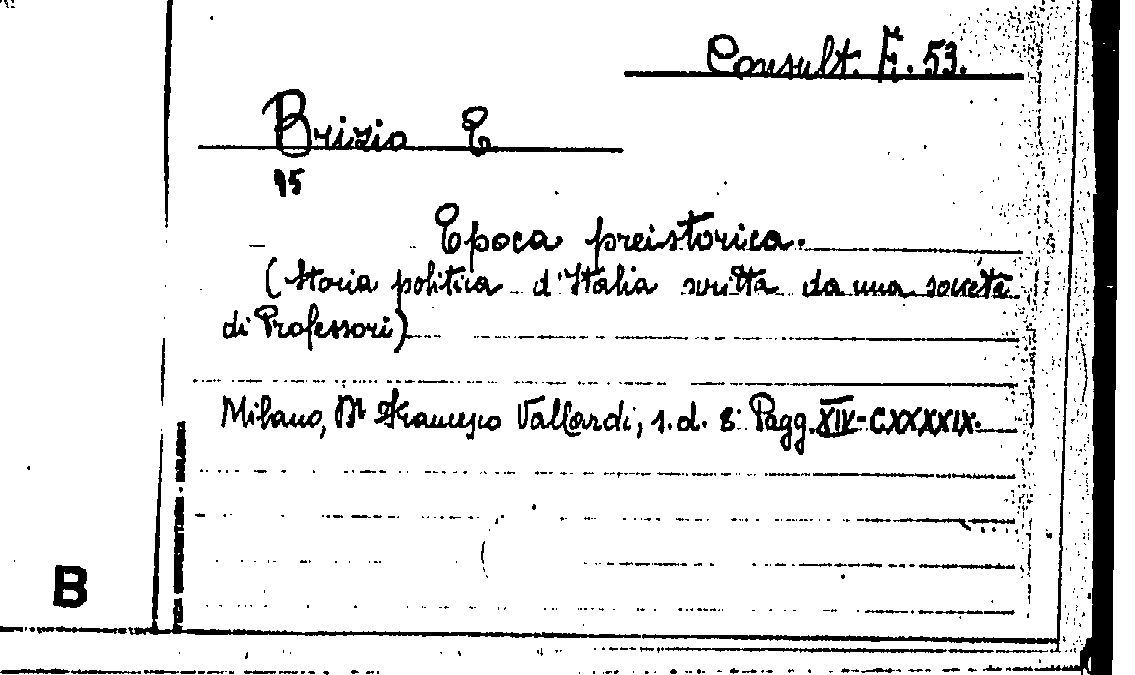 Consult. E. 53.
Brizio E
95
Epoca preistorica.
(Storia politica d'Italia scritta da una società
di Professori)
Milano, Dr Francesco Vallardi, s. d. 8° Pagg. XIV-CXXXXIX.
TECA UNIVERSITARIA - BOLOGNA
B